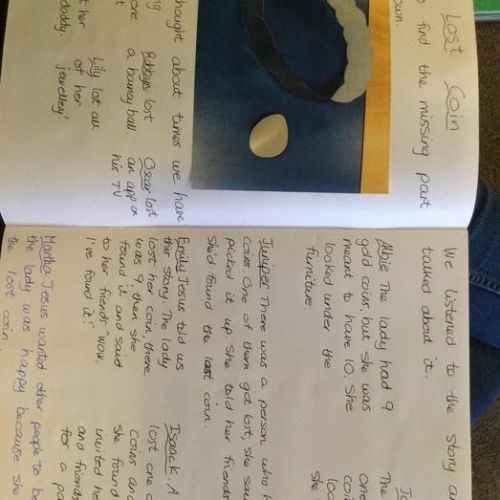 Lost Coin
find the missing part
own.
hought about times we have
Robbyn lost
a bouncy ball.
Oscar lost
an app on
his TV
Lily lost all
of her
jewellery
her
daddy
We listened to the story a
talked about it.
Albie The lady had 9
gold coins, but she was
meant to have 10. She
looked under the
furniture.
The
one
coin
loo
she
Juniper There was a person who h
coins One of them got lost, she sa
picked it up. She told her friends
she'd found the last coin.
Emily Jesus told us
this Story. The lady
lost her coin, there
was , then she
found it and said
to her friends "wow,
I've found it!"
Isaac K. A
lost one c
coins and
she found
invited he
and friends
for a pa
Martha Jesus wanted other people to b
the lady was happy because she
the lost coin.